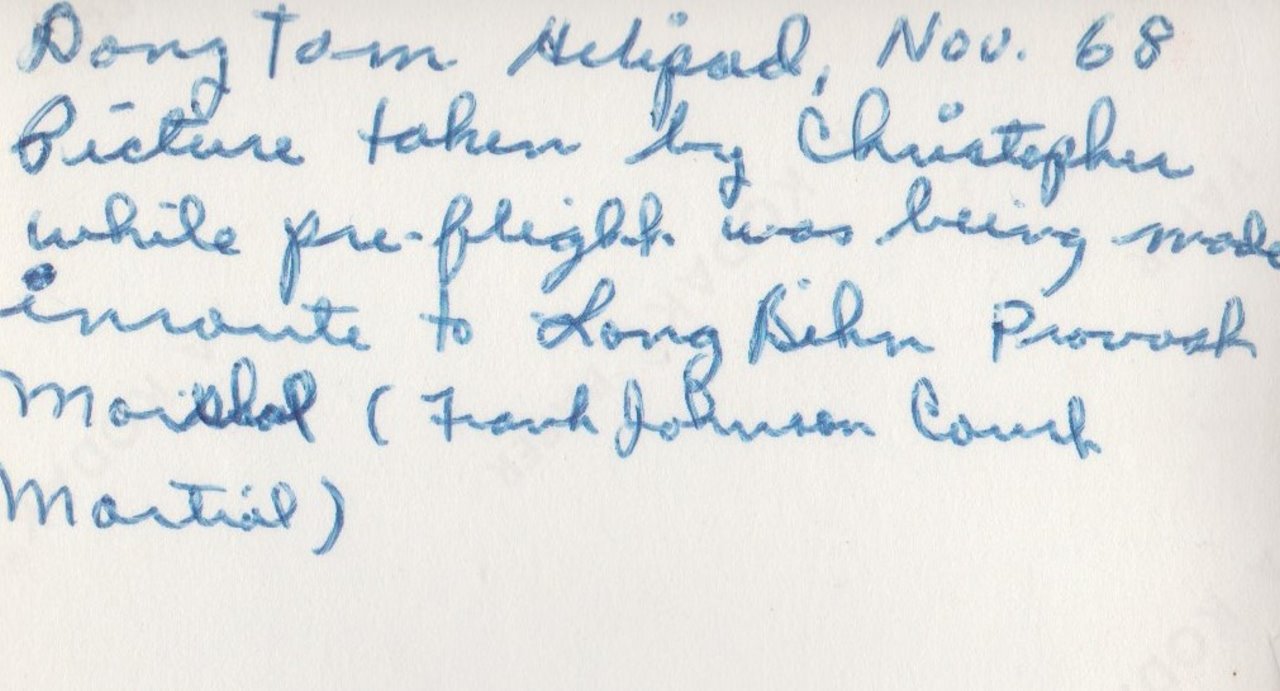 Dong Tam Helipad, Nov. 68
Picture taken by Christopher
while pre-flight was being made
inroute to Long Bihn Provost
Marshal (Frank Johnson Court
Martial)